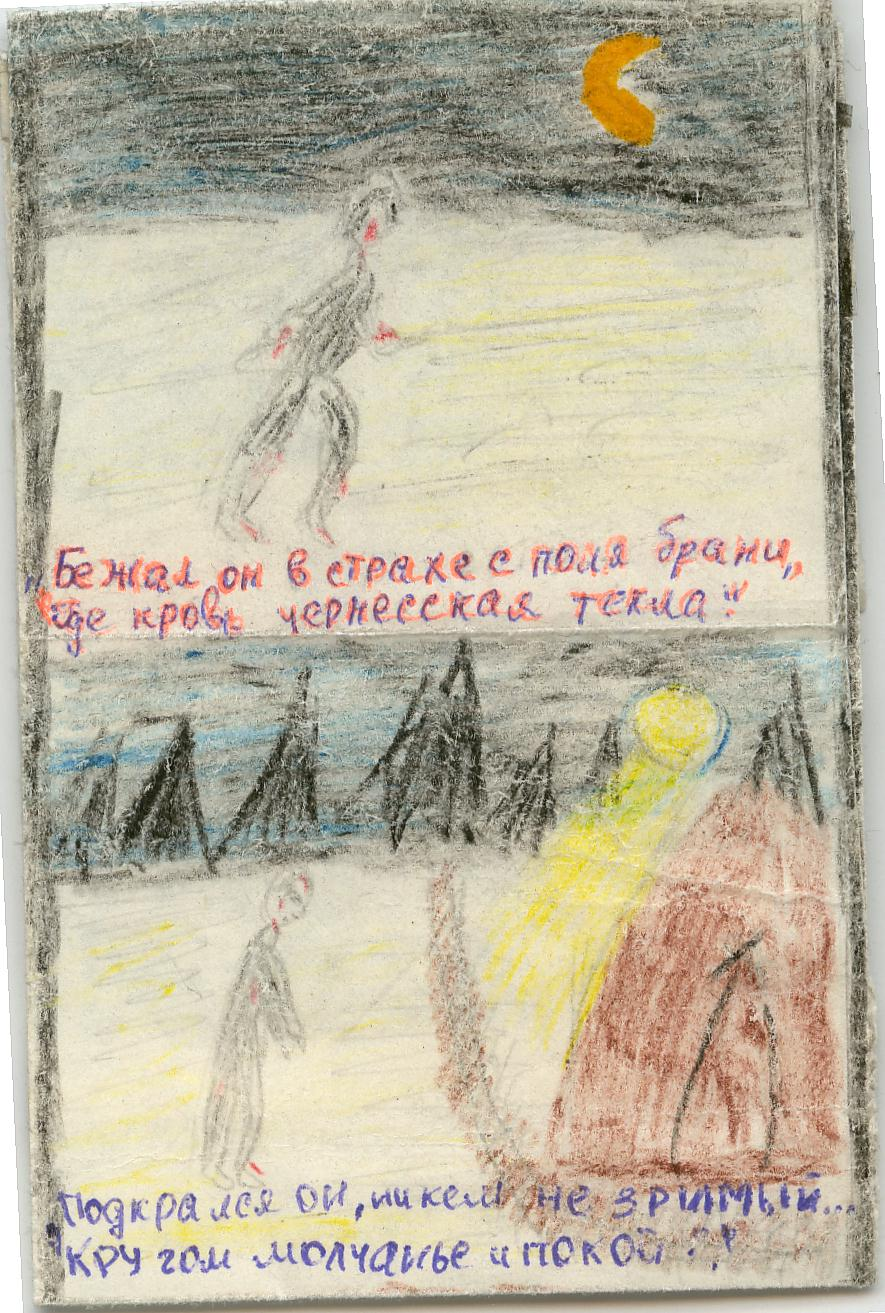 „Бежал он в страхе с поля брани,,
Где кровь чернесская текла"
Подкрался он, никем не зримый...
Кругом молчанье и покой?"